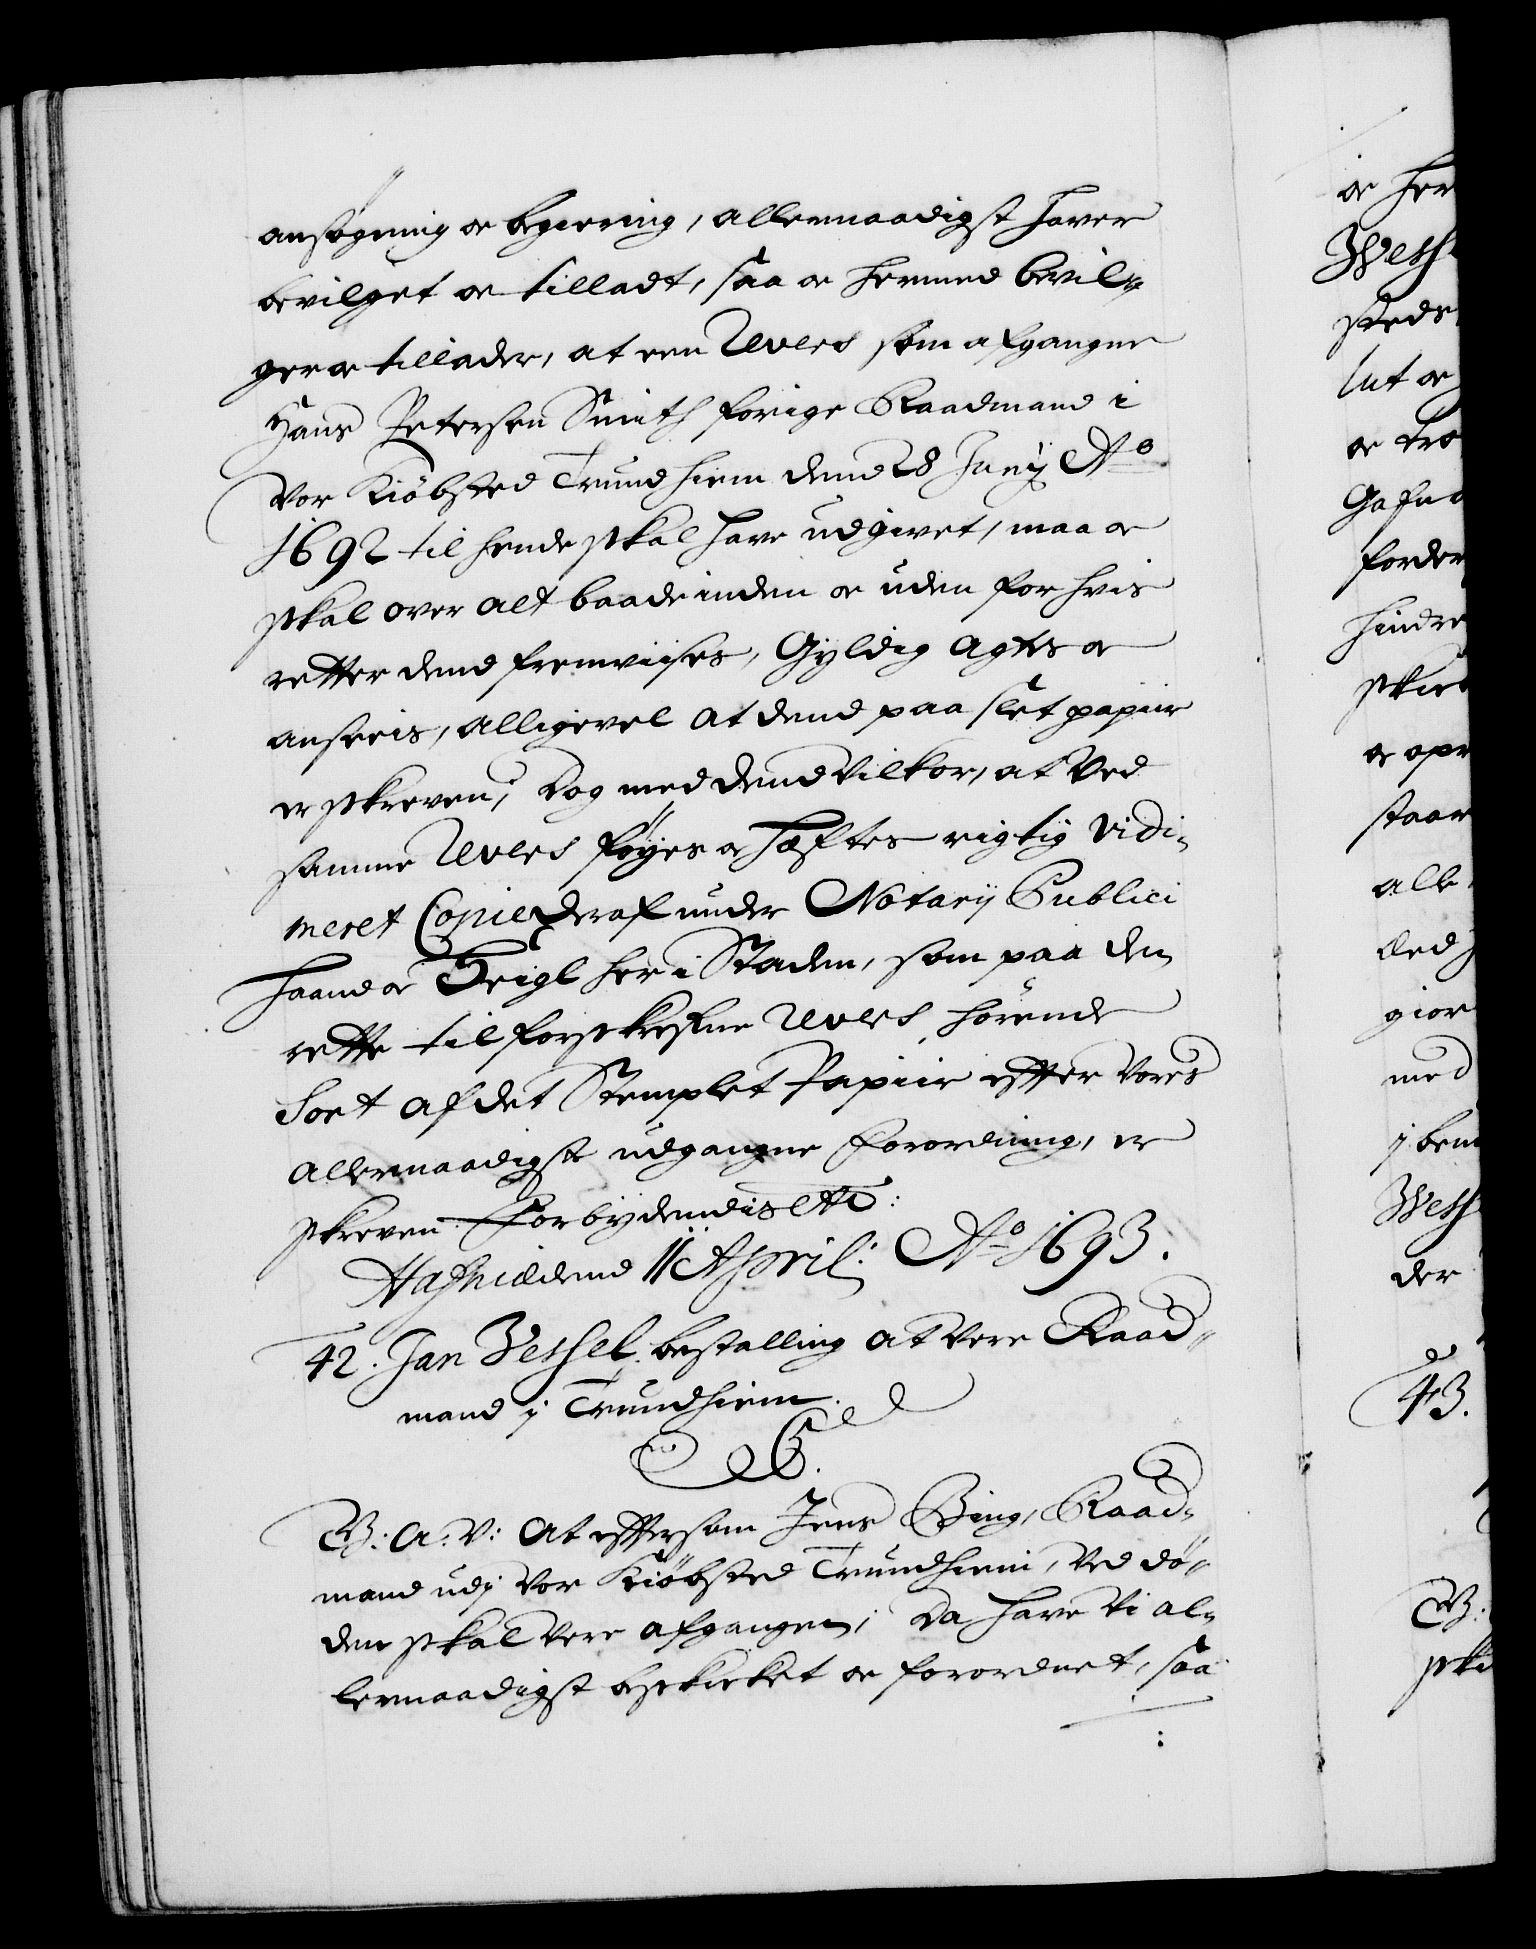 ansøgning oc begiering, allernaadigst haver
bevilget oc tilladt, saa oc hermed bevil-
ger oc tillader, at een Revers som afgangne
Hans Petersen Smith forige Raadmand i
vor Kiøbsted Trundhiem dend 28 Junij Ao
1692 til hende skal have udgivet, maa oc
skal over alt baade inden oc uden for hvis
retter dend fremviises, Gyldig agtes oc
anseeis, alligevel at dend paa slet papiir
er skreven; Dog med dend vilkor, at ved
samme Revers føyes oc hæftes rigtig vidi-
meret Copie deraf under Notarij Publici
haand oc Seigl her i Staden, som paa den
rette til forskrefne Revers hørende
Sort af det Stemplet Papiir effter vores
allernaadigste udgangne Forordning, er
skreven. Forbydendis etc:
Hafniæ dend 11 April: Ao 1693.
42. Jan Wessel bestalling at være Raad-
mand i Trundhiem.
C5.
G. A. V: At eftersom Jens Bing, Raad-
mand udj vor Kiøbsted Trundhiem, ved dø-
den skal være afgangen; Da have Vi al-
lernaadigst beskicket oc forordnet, saa
oc her
Wess
steds
lut oc
oc tro
Gafn
forder
hindre
skic
oc opr
staar
alle
led
gior
med
i bem
Wess
der
43.
G:
ski